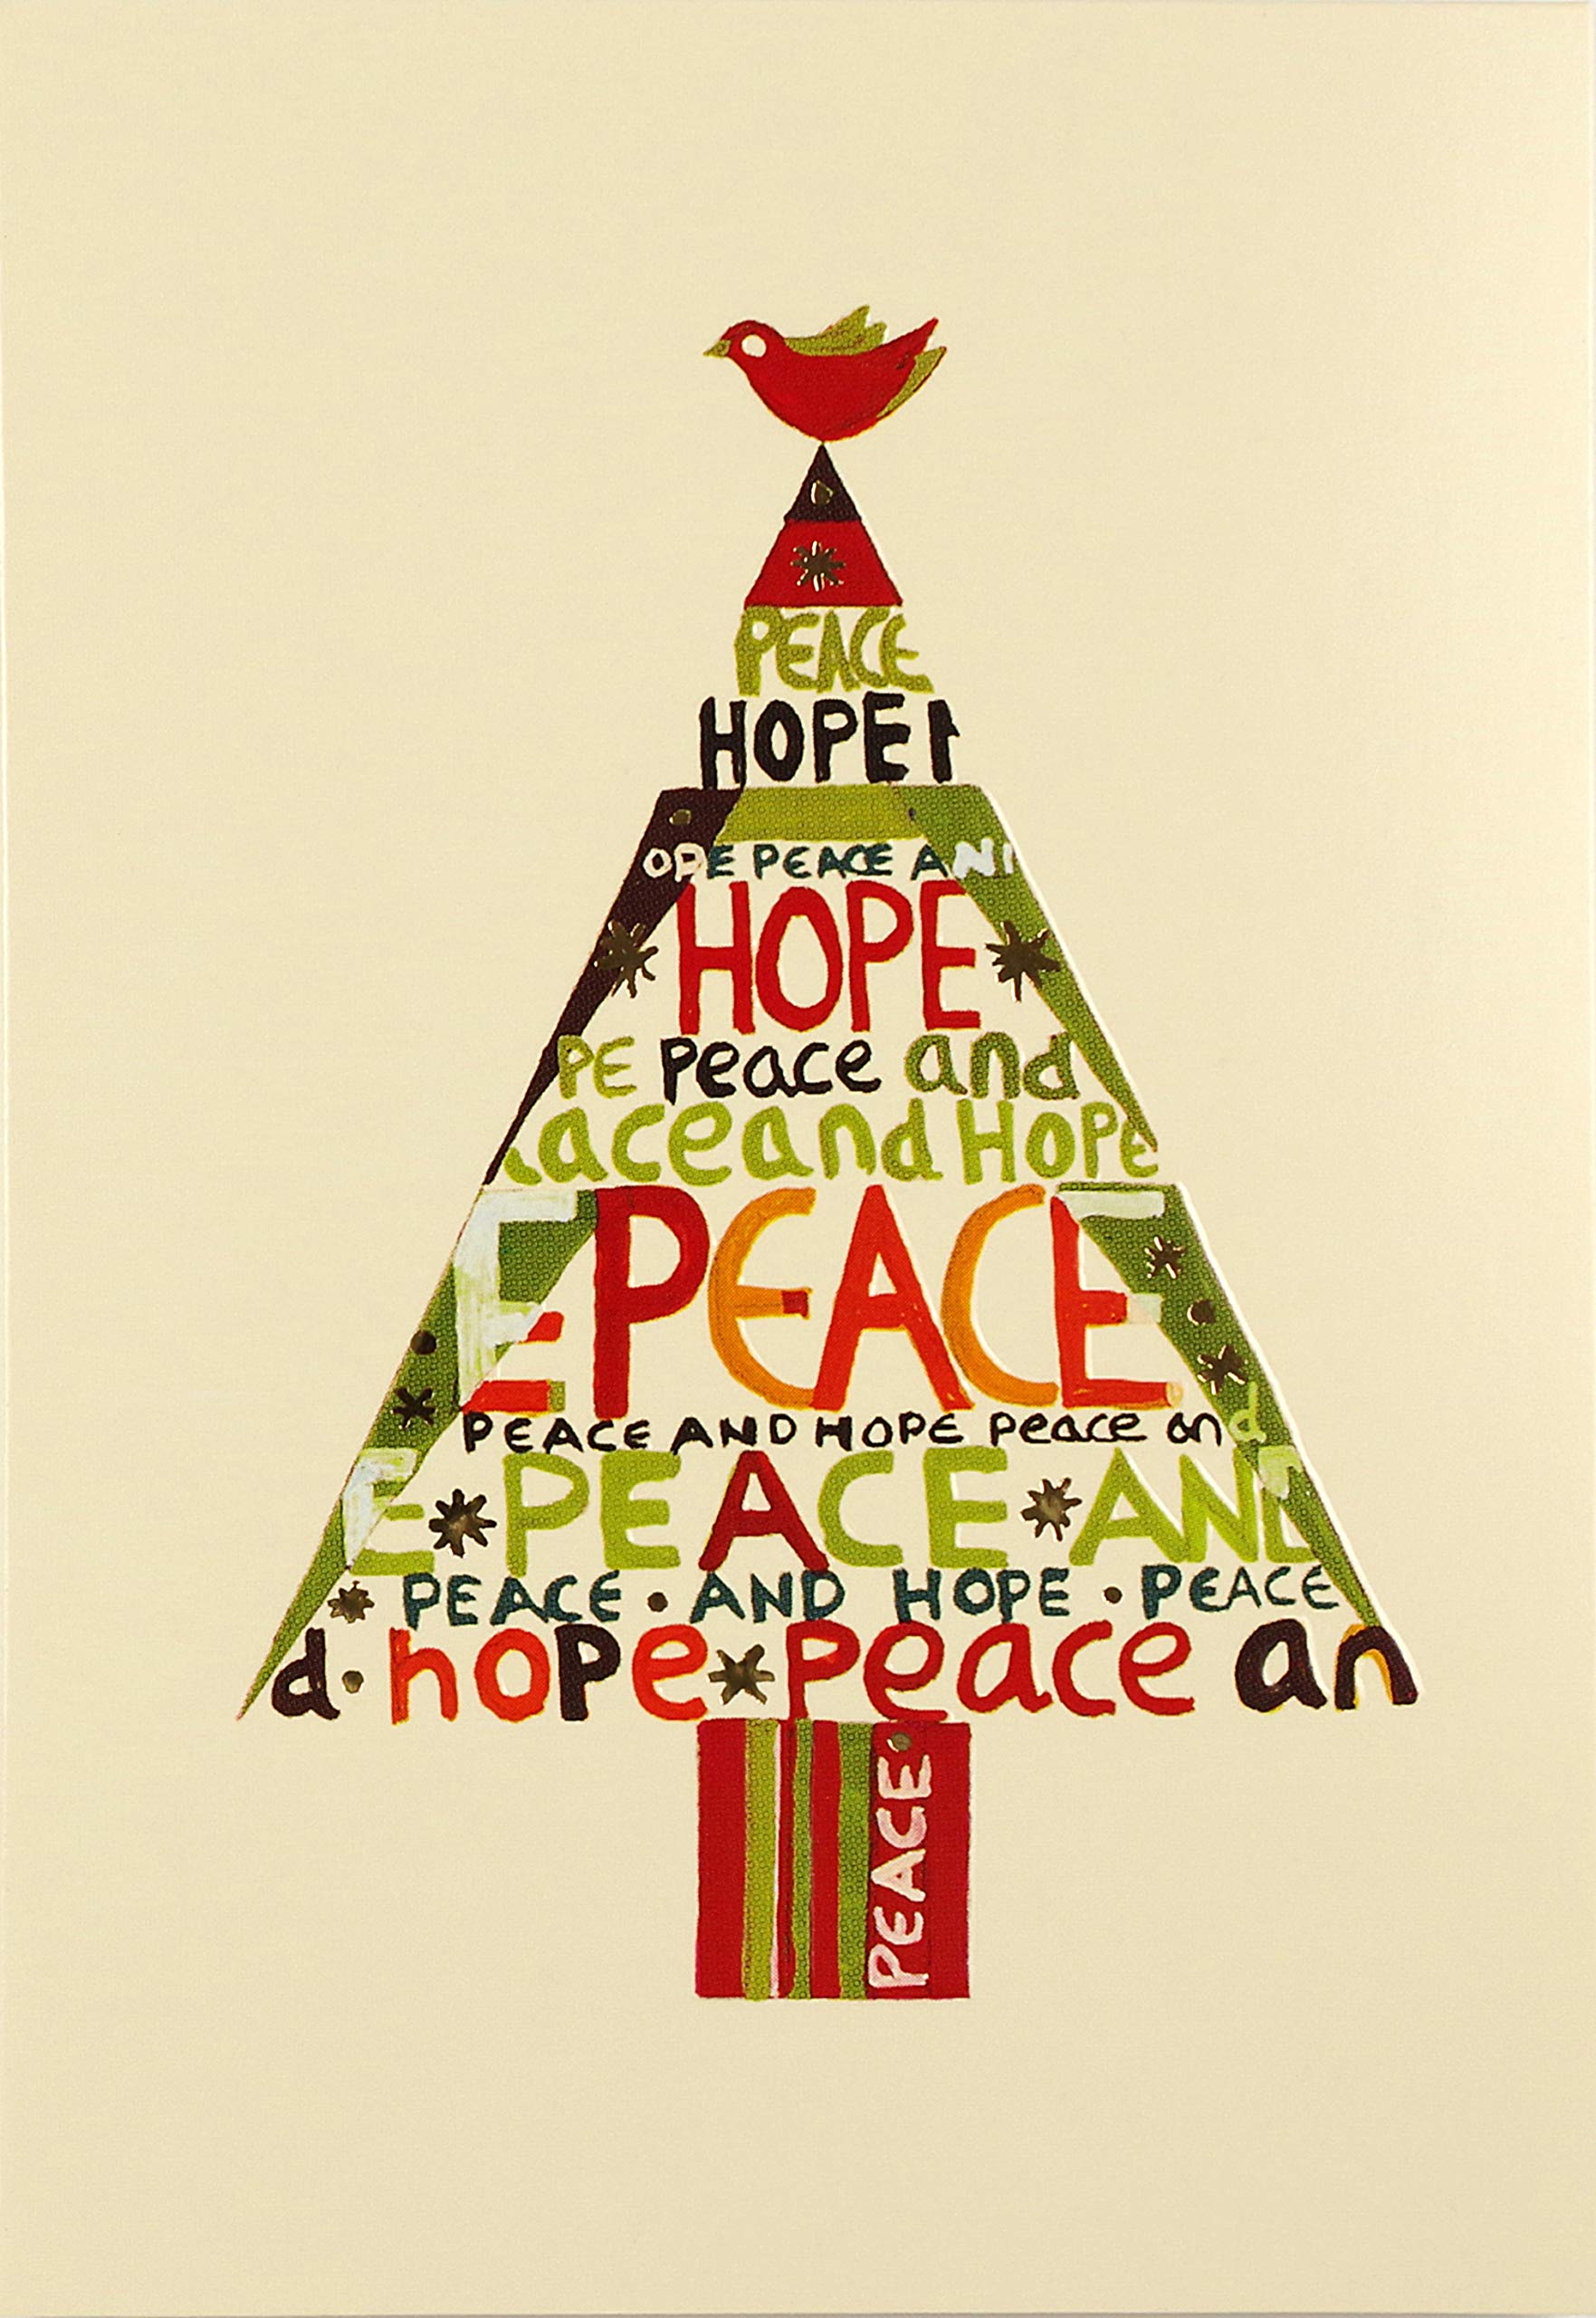 PEACE
HOPE
OPE PEACE AN
HOPE
PE peace and
ace and HOPE
E PEACE
PEACE AND HOPE peace and
E PEACE AND
PEACE • AND HOPE • PEACE
d • hope peace an
PEACE